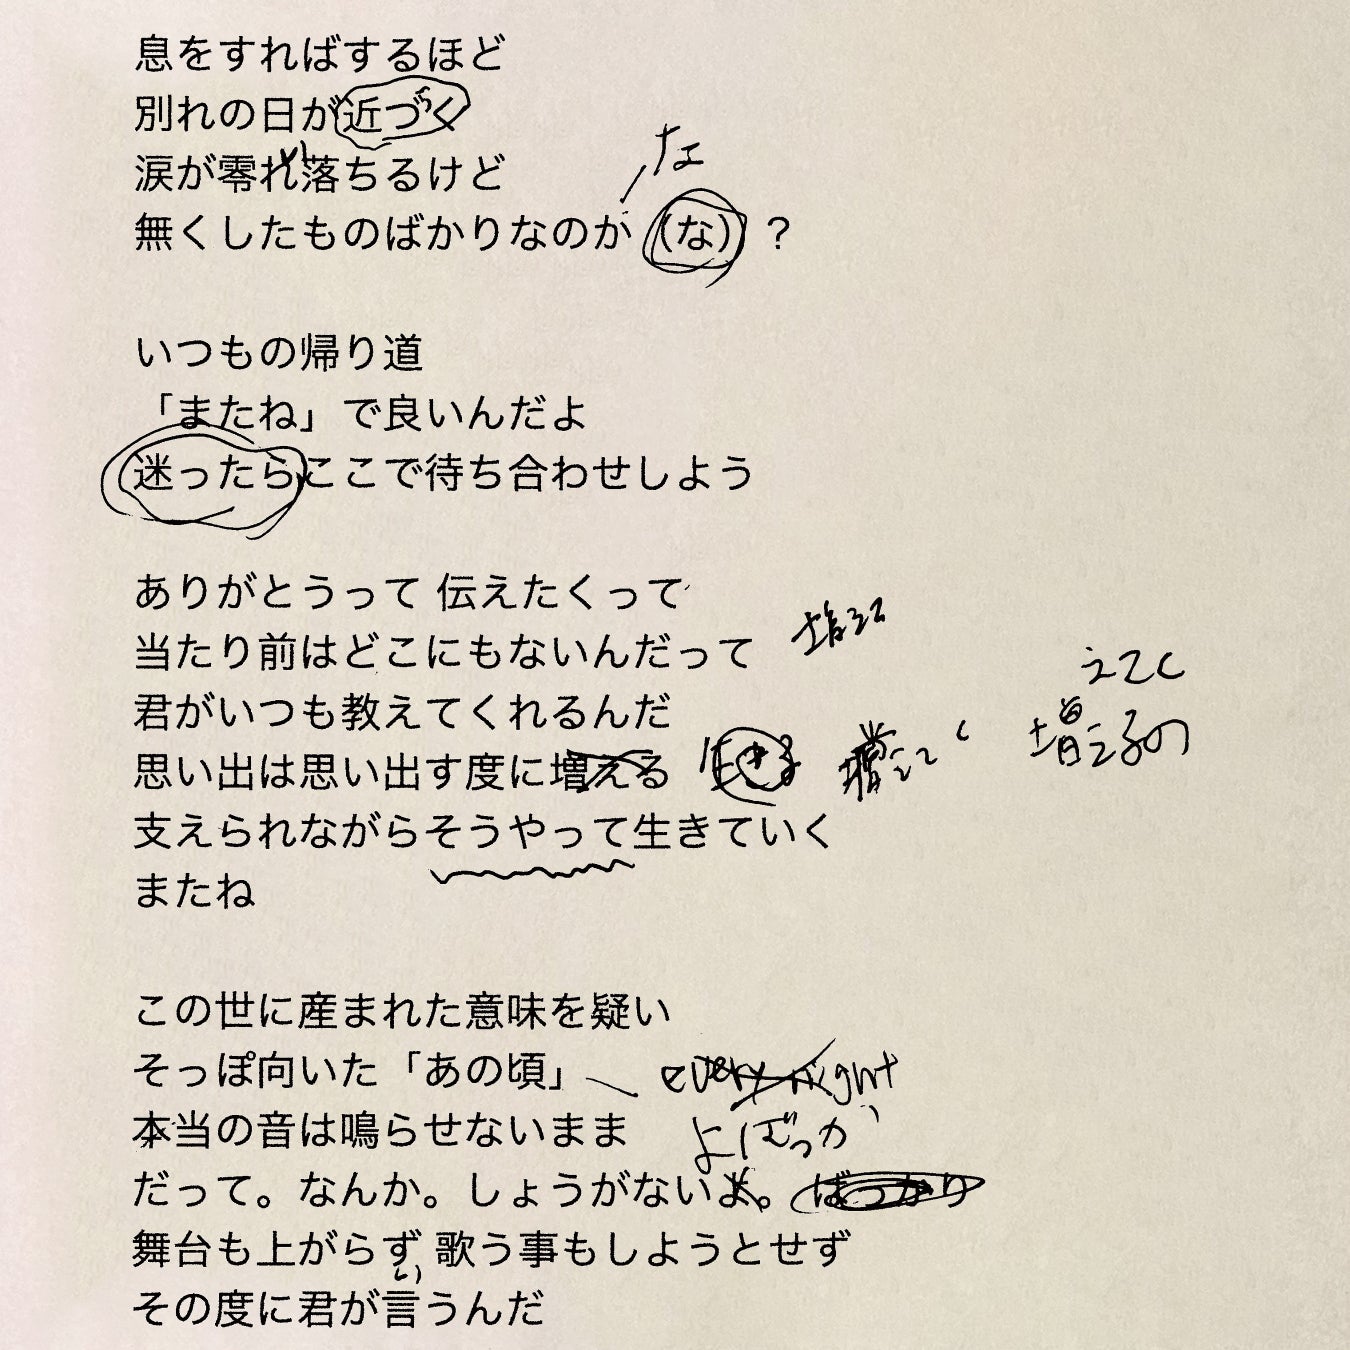 息をすればするほど
別れの日が近づく
涙が零れ落ちるけど
な
無くしたものばかりなのか（な）？
いつもの帰り道
「またね」で良いんだよ
迷ったらここで待ち合わせしよう
ありがとうって 伝えたくって
当たり前はどこにもないんだって
増えて
君がいつも教えてくれるんだ
えてく
思い出は思い出す度に増える
増えるの
支えられながらそうやって生きていく
またね
この世に産まれた意味を疑い
そっぽ向いた「あの頃」
every night
本当の音は鳴らせないまま
よばっか
だって。なんか。しょうがないよ。
ばっかり
舞台も上がらず 歌う事もしようとせず
い
その度に君が言うんだ